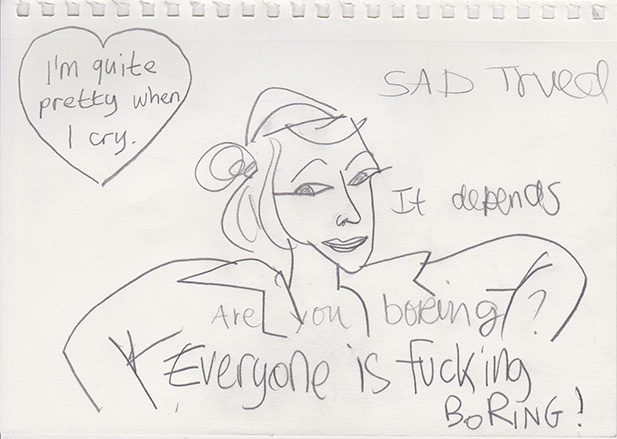 I'm quite
pretty when
I cry.
SAD
It depends
Are you boring?
Everyone is fucking
BORING!